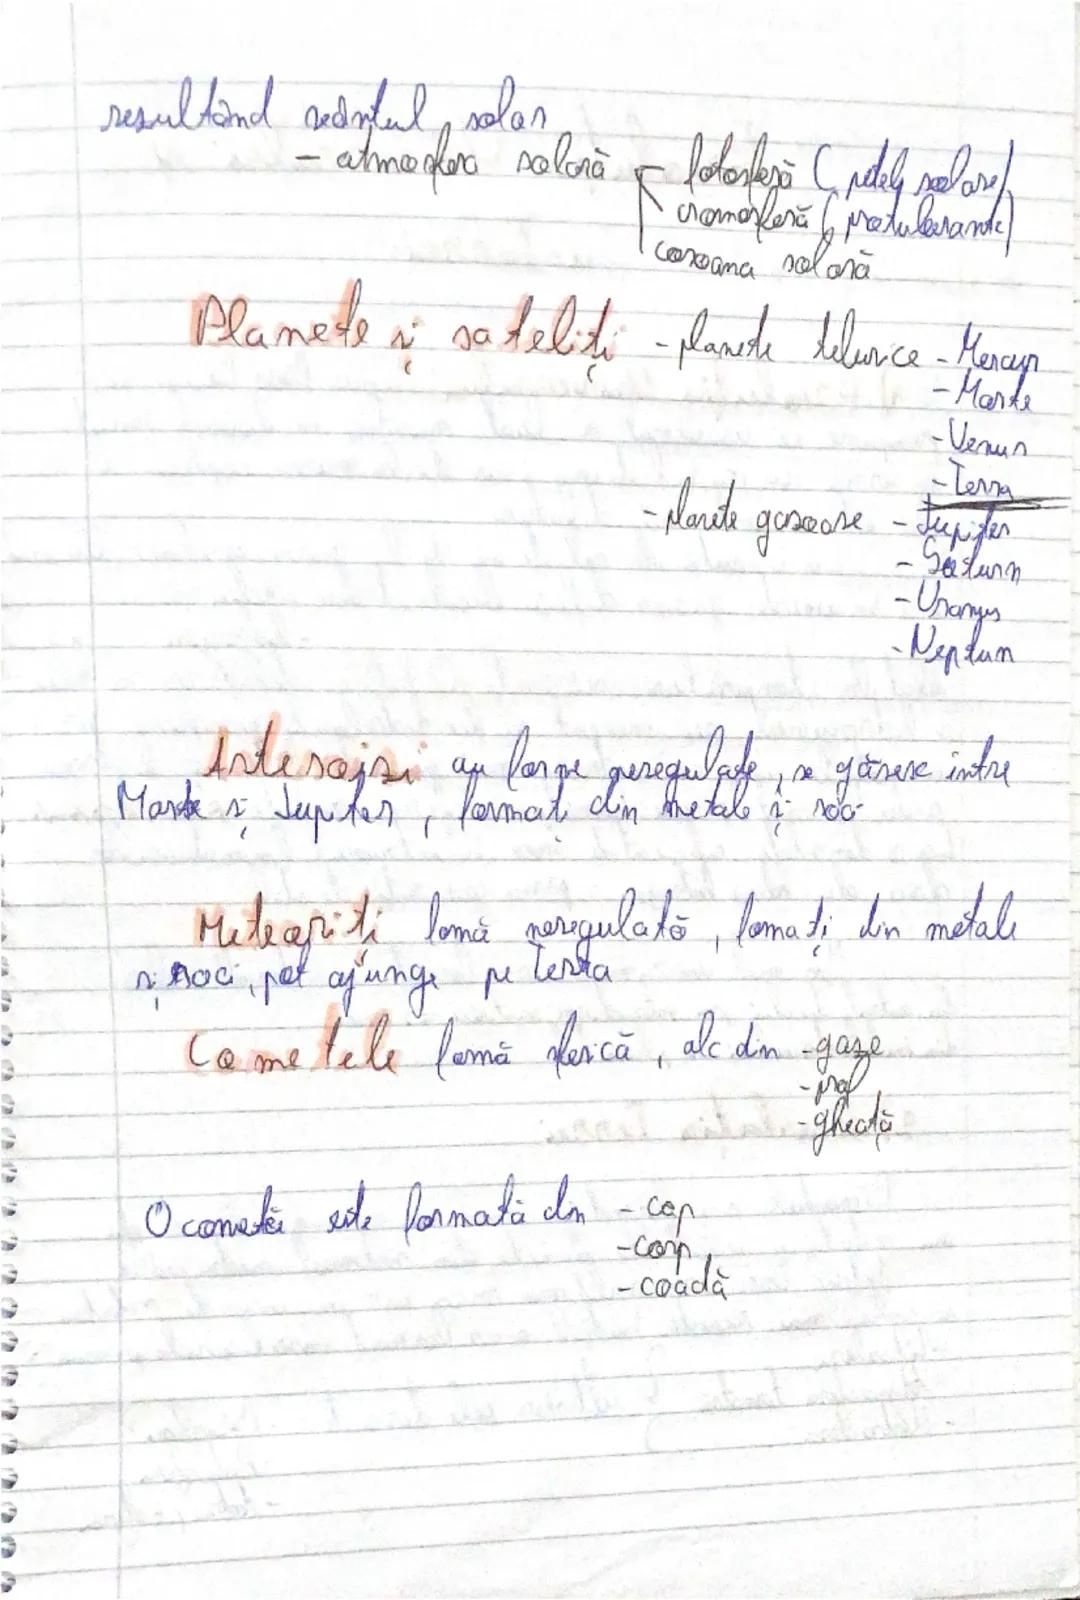 resultând vântul solar
- atmosfera solară - fotosferă (petele solare)
cromosferă (protuberante)
coroana solară
Planete și sateliți - planete telurice - Mercur
- Marte
- Venus
- Terra
- planete gazoase - Jupiter
- Saturn
- Uranus
- Neptun
au forme neregulate, se găsesc între
Marte și Jupiter, formați din metale și roci
Meteoriți formă neregulată, formați din metale
și roci, pot ajunge pe Terra
Cometele formă sferică, alc din - gaze
- praf
- gheață
O cometă este formată din - cap
- corp
- coadă